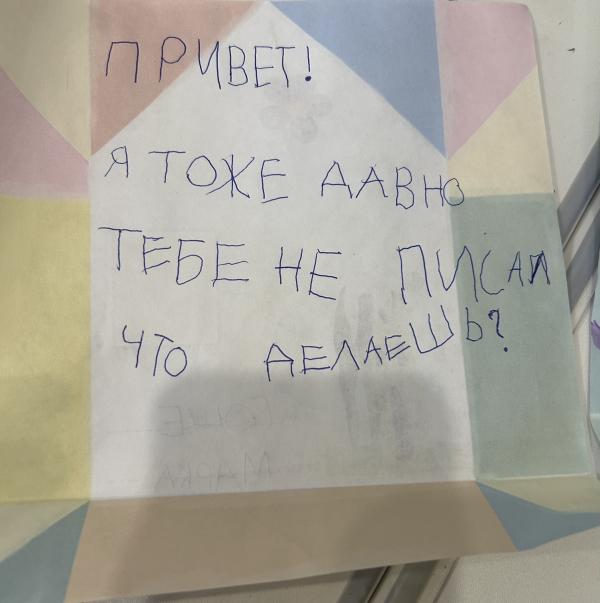 ПРИВЕТ!
Я ТОЖЕ ДАВНО
ТЕБЕ НЕ ПИСАЛ
ЧТО ДЕЛАЕШЬ?